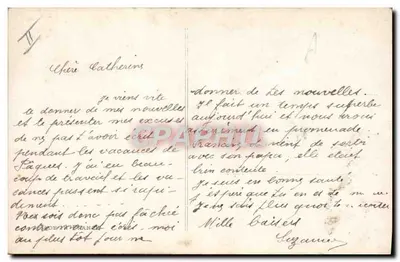 II
A
Chère Catherine
Je viens vite
te donner de mes nouvelles
et te présenter mes excuses
de ne pas t'avoir écrit
pendant les vacances de
Pâques. J'ai eu beau-
coup de travail et les va-
cances passent si rapi-
dement.
Ne sois donc pas fâchée
écris moi
au plus tôt pour me
donner de tes nouvelles.
Il fait un temps superbe
aujourd'hui et nous avons
en promenade
vient de sortir
avec son papa, elle était
bien contente
Je suis en bonne santé
j'espère que tu en es de même
Je ne sais plus quoi te
Mille baisers
Suzanne